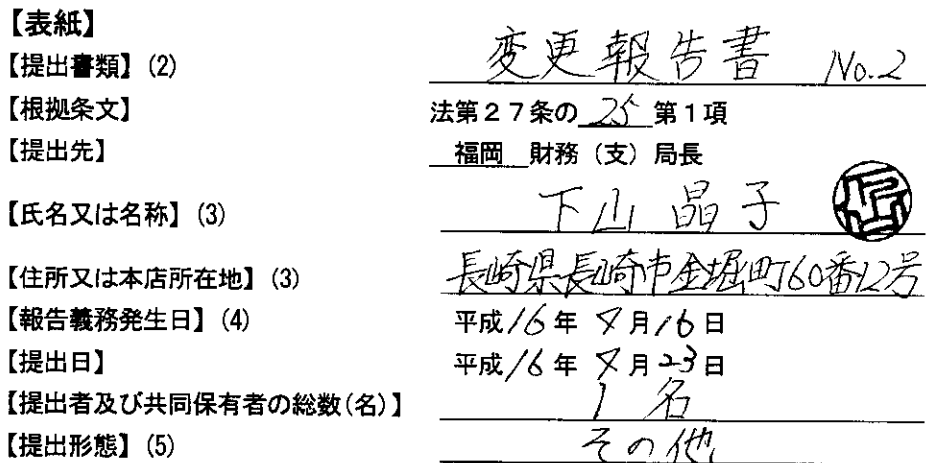 【表紙】
【提出書類】(2) 変更報告書 No.2
【根拠条文】 法第27条の 25 第1項
【提出先】 福岡 財務(支)局長
【氏名又は名称】(3) 下山 晶子
【住所又は本店所在地】(3) 長崎県長崎市金堀町60番12号
【報告義務発生日】(4) 平成16年 月16日
【提出日】 平成16年 月23日
【提出者及び共同保有者の総数(名)】 1名
【提出形態】(5) その他